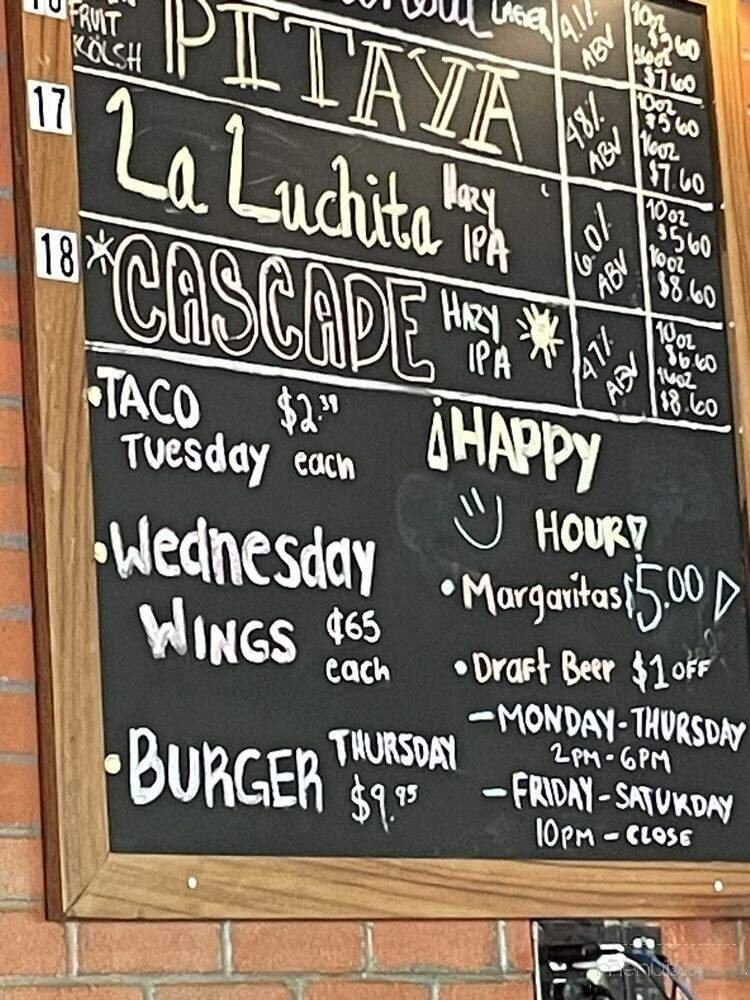 LAGER 4.1% ABV 10oz
$5.60
16oz
$7.60
FRUIT
KÖLSH
PITAYA 4.8% ABV 10oz
$5.60
16oz
$7.60
17
La Luchita Hazy IPA 6.0% ABV 10oz
$5.60
16oz
$8.60
18
CASCADE HAZY IPA 4.7% ABV 10oz
$6.60
16oz
$8.60
TACO $2.39
Tuesday each
Wednesday
WINGS ¢65
each
BURGER THURSDAY
$9.95
¡HAPPY
HOUR!
• Margaritas $5.00
• Draft Beer $1 OFF
- MONDAY - THURSDAY
2PM - 6PM
- FRIDAY - SATURDAY
10PM - CLOSE